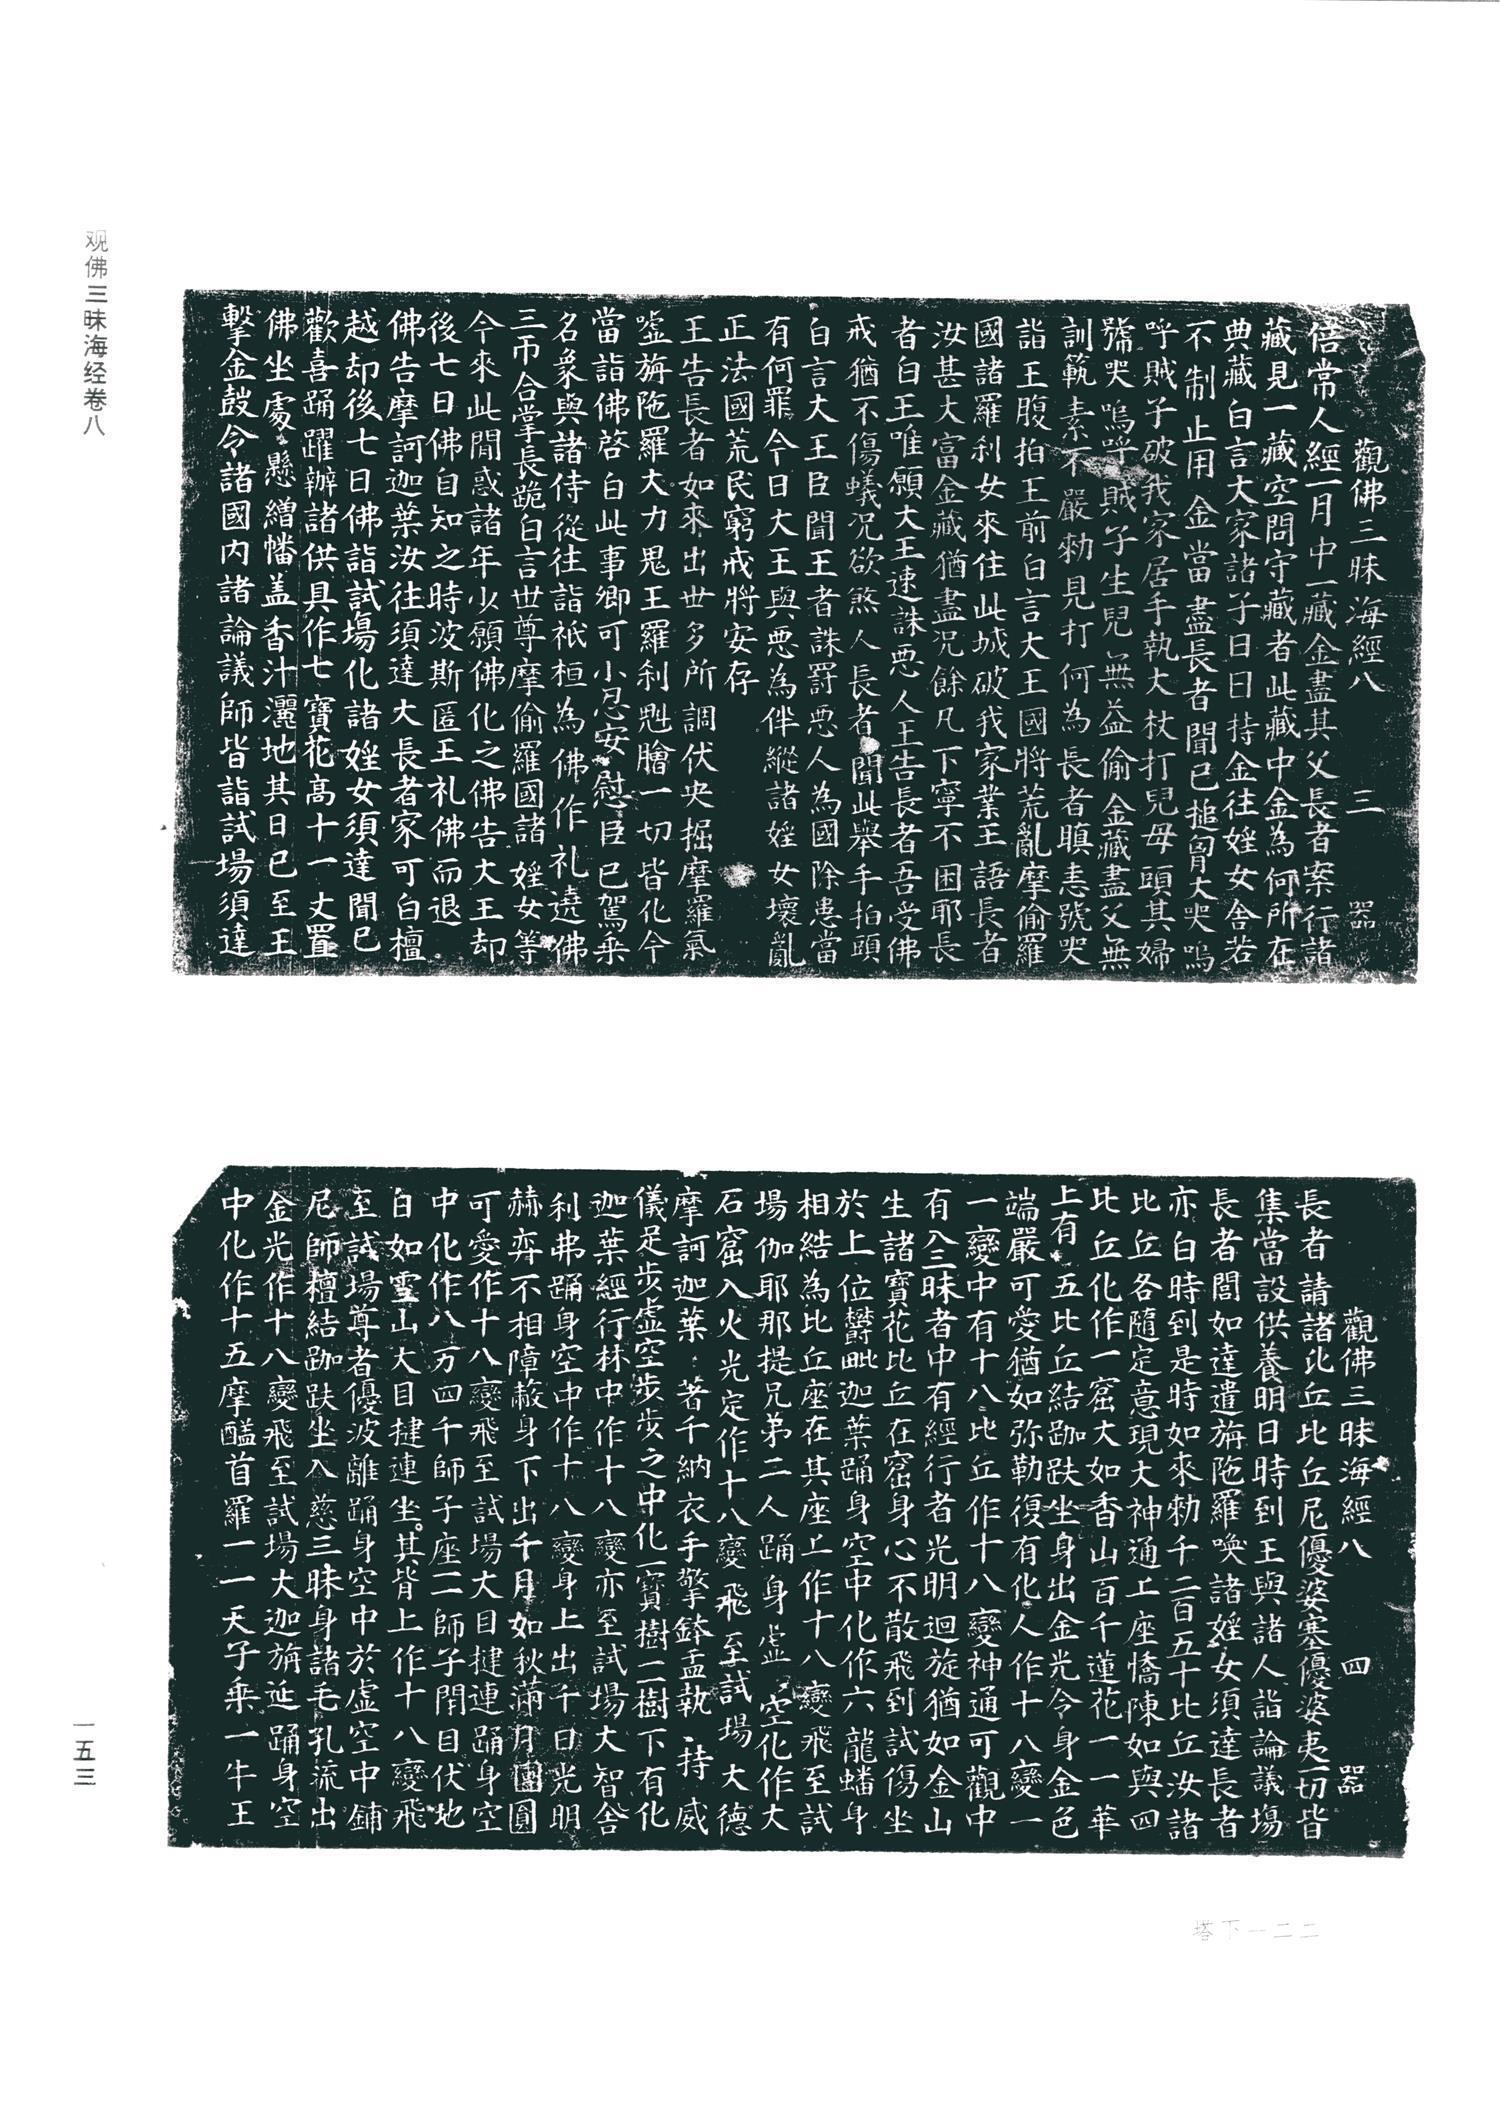 观佛三昧海经卷八
觀佛三昧海經八 三 器
倍常人經一月中一藏金盡其父長者案行諸
藏見一藏空問守藏者此藏中金為何所在
典藏白言大家諸子日日持金往婬女舍若
不制止用金當盡長者聞已搥胷大哭嗚
呼賊子破我家居手執大杖打兒母頭其婦
號哭嗚呼賊子生兒無益偷金藏盡父無
訓範素不嚴勑見打何為長者瞋恚號哭
詣王腹拍王前白言大王國將荒亂摩偷羅
國諸羅利女來住此城破我家業王語長者
汝甚大富金藏猶盡況餘凡下寧不困耶長
者白王唯願大王速誅惡人王告長者吾受佛
戒猶不傷蟻況欲煞人長者聞此舉手拍頭
白言大王臣聞王者誅罸惡人為國除患當
有何罪今日大王與惡為伴縱諸婬女壞亂
正法國荒民窮戒將安存
王告長者如來出世多所調伏央掘摩羅氣
噓旃陁羅大力鬼王羅利魁膾一切皆化今
當詣佛啓白此事卿可小忍安慰臣已駕乘
名象與諸侍從往詣祇桓為佛作礼遶佛
三帀合掌長跪白言世尊摩偷羅國諸婬女等
今來此間惑諸年少願佛化之佛告大王却
後七日佛自知之時波斯匿王礼佛而退
佛告摩訶迦葉汝往須達大長者家可白檀
越却後七日佛詣試場化諸婬女須達聞已
歡喜踊躍辦諸供具作七寶花高十一丈置
佛坐處懸繒幡盖香汁灑地其日已至王
擊金鼓令諸國内諸論議師皆詣試場須達
觀佛三昧海經八 四 器
長者請諸比丘比丘尼優婆塞優婆夷一切皆
集當設供養明日時到王與諸人詣論議場
長者閻如達遣旃陁羅喚諸婬女須達長者
亦白時到是時如來勑千二百五十比丘汝諸
比丘各隨定意現大神通上座憍陳如與四
比丘化作一窟大如香山百千蓮花一一華
上有五比丘結跏趺坐身出金光令身金色
端嚴可愛猶如弥勒復有化人作十八變一
一變中有十八比丘作十八變神通可觀中
有八三昧者中有經行者光明迴旋猶如金山
生諸寶花比丘在窟身心不散飛到試傷坐
於上位欝毗迦葉踊身空中化作六龍蟠身
相結為比丘座在其座上作十八變飛至試
場伽耶那提兄弟二人踊身虛空化作大
石窟入火光定作十八變飛至試場大德
摩訶迦葉著千納衣手擎鉢盂執持威
儀足步虛空步步之中化一寶樹二樹下有化
迦葉經行林中作十八變亦至試場大智舍
利弗踊身空中作十八變身上出千日光明
赫弈不相障蔽身下出千月如秋滿月團圓
可愛作十八變飛至試場大目揵連踊身空
中化作八万四千師子座二師子閇目伏地
白如雪山大目揵連坐其背上作十八變飛
至試場尊者優波離踊身空中於虛空中鋪
尼師檀結跏趺坐入慈三昧身諸毛孔流出
金光作十八變飛至試場大迦旃延踊身空
中化作十五摩醯首羅一一天子乘一牛王
一五三
塔下一二二